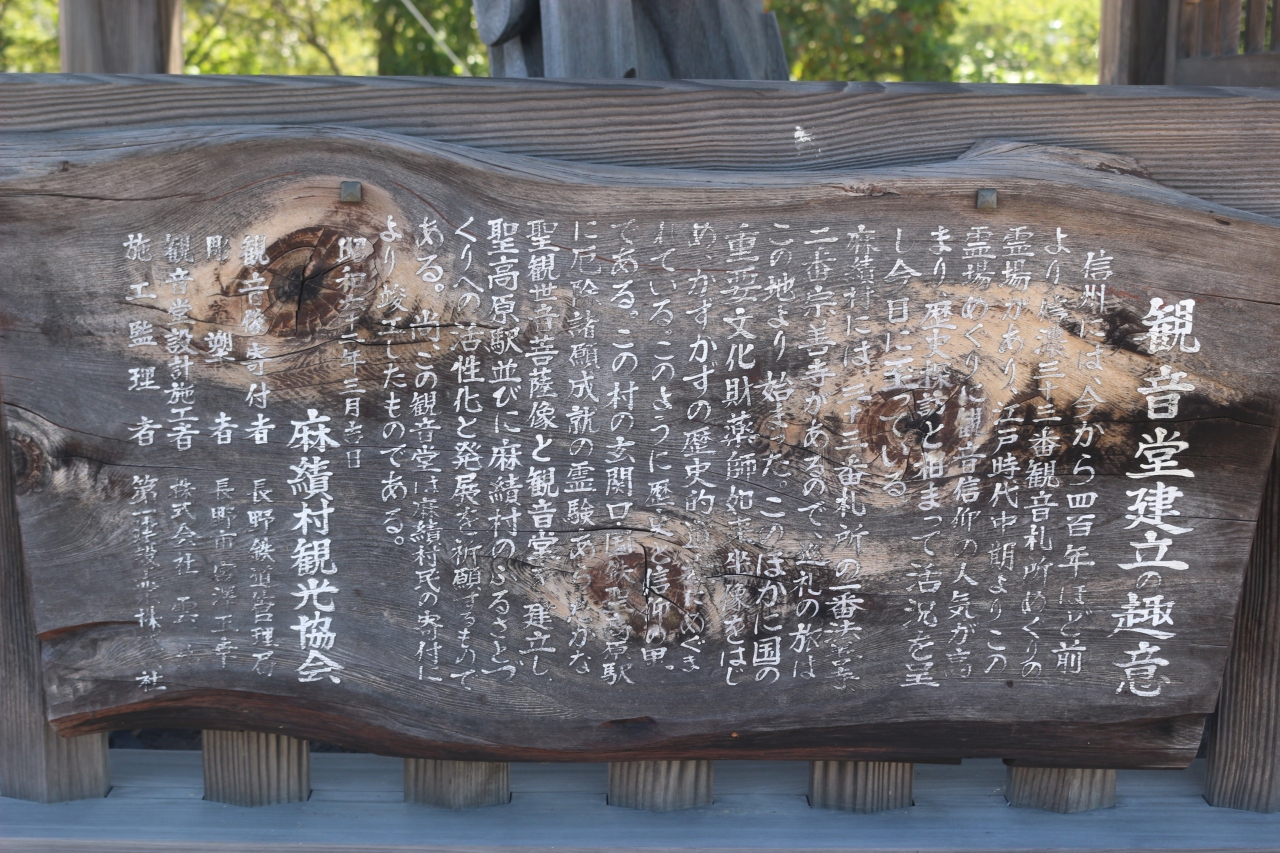 観音堂建立の趣意
信州には、今から四百年ほど前
より信濃三十三番観音札所めぐりの
霊場があり、江戸時代中期よりこの
霊場めぐりに観音信仰の人気が高
まり、歴史探訪と相まって活況を呈
し今日に至っている。
麻績村には三十三番札所の一番法善寺
二番宗善寺があるので、巡礼の旅は
この地より始まった。このほかに国の
重要文化財薬師如来坐像をはじ
め、かずかずの歴史的
れている。このように歴史と信仰の里
である。この村の玄関口国鉄聖高原駅
に厄除諸願成就の霊験あらたかな
聖観世音菩薩像と観音堂を建立し、
聖高原駅並びに麻績村のふるさとづ
くりへの活性化と発展を祈願するもので
ある。尚この観音堂は麻績村民の寄付に
より竣工したものである。
昭和六十一年三月吉日
麻績村観光協会
観音像寄付者 長野鉄道管理局
彫塑者 長野市 宮澤
観音堂設計施工者 株式会社
施工監理者 第一建設